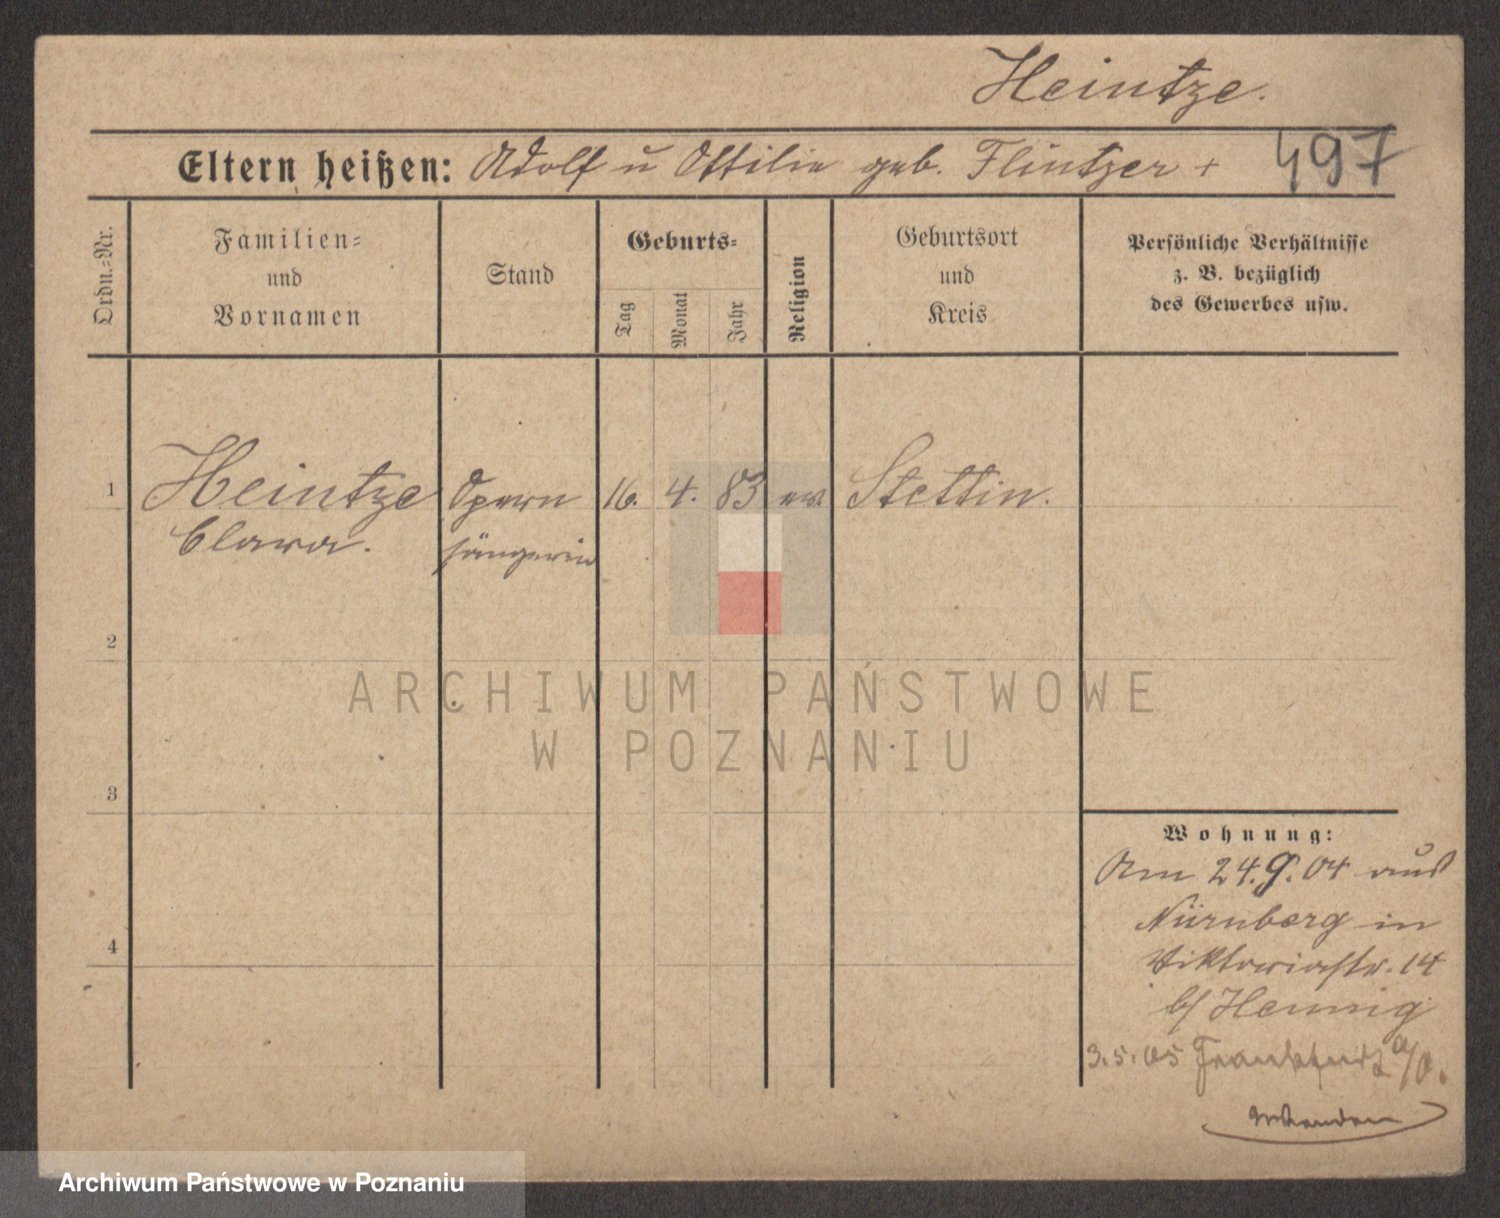 Heintze.
Eltern heißen: Adolf u Ottilie geb. Flintzer +
497
Ordn.-Nr.
Familien-
und
Vornamen
Stand
Geburts-
Tag
Monat
Jahr
Religion
Geburtsort
und
Kreis
Persönliche Verhältnisse
z. B. bezüglich
des Gewerbes usw.
1 Heintze Opern 16. 4. 83 ev. Stettin.
Clara. sängerin
2
ARCHIWUM PAŃSTWOWE
W POZNANIU
3
Wohnung:
Am 24.9.04 aus
Nürnberg in
4
Viktoriastr. 14
b/ Hennig
3.5.05 Frankfurt a/O.
Archiwum Państwowe w Poznaniu